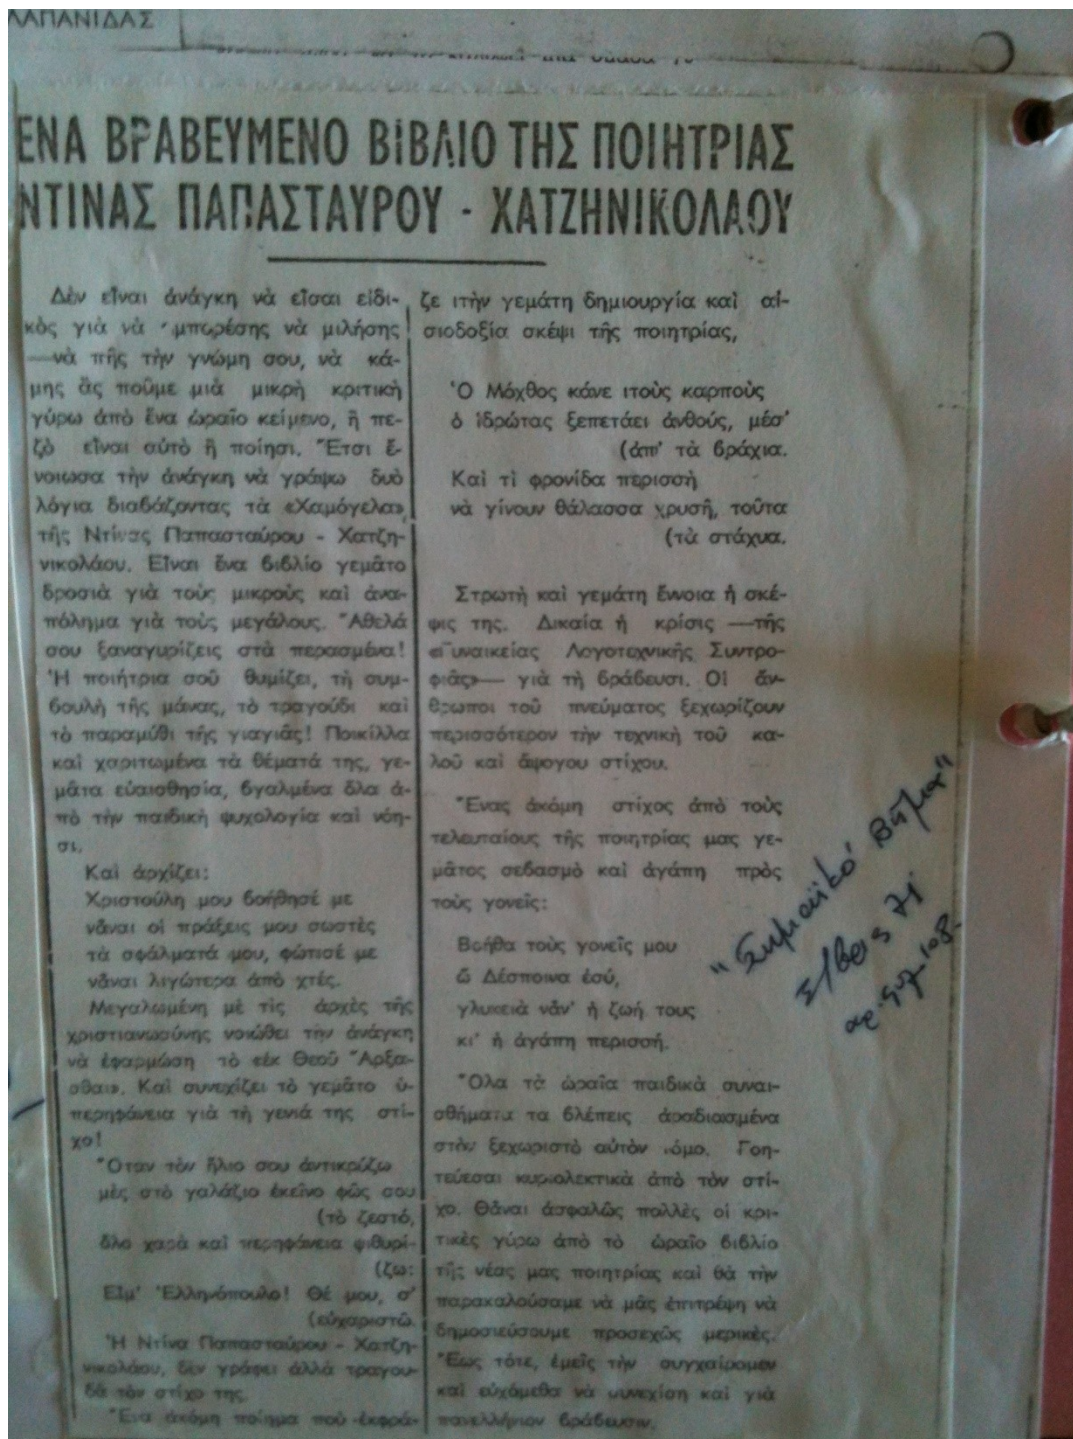 ΛΑΠΑΝΙΔΑΣ
ΕΝΑ ΒΡΑΒΕΥΜΕΝΟ ΒΙΒΛΙΟ ΤΗΣ ΠΟΙΗΤΡΙΑΣ
ΝΤΙΝΑΣ ΠΑΠΑΣΤΑΥΡΟΥ - ΧΑΤΖΗΝΙΚΟΛΑΟΥ
Δὲν εἶναι ἀνάγκη νὰ εἶσαι εἰδι-
κὸς γιὰ νὰ μπορέσης νὰ μιλήσης
—νὰ πῆς τὴν γνώμη σου, νὰ κά-
μης ἄς ποῦμε μιὰ μικρὴ κριτικὴ
γύρω ἀπὸ ἕνα ὡραῖο κείμενο, ἢ πε-
ζὸ εἶναι αὐτὸ ἢ ποίησι. Ἔτσι ἔ-
νοιωσα τὴν ἀνάγκη νὰ γράψω δυὸ
λόγια διαβάζοντας τὰ «Χαμόγελα»
τῆς Ντίνας Παπασταύρου - Χατζη-
νικολάου. Εἶναι ἕνα βιβλίο γεμᾶτο
δροσιὰ γιὰ τοὺς μικροὺς καὶ ἀνα-
πόλημα γιὰ τοὺς μεγάλους. Ἄθελά
σου ξαναγυρίζεις στὰ περασμένα!
Ἡ ποιήτρια σοῦ θυμίζει, τὴ συμ-
βουλὴ τῆς μάνας, τὸ τραγούδι καὶ
τὸ παραμύθι τῆς γιαγιᾶς! Ποικίλλα
καὶ χαριτωμένα τὰ θέματά της, γε-
μᾶτα εὐαισθησία, βγαλμένα ὅλα ἀ-
πὸ τὴν παιδικὴ ψυχολογία καὶ νόη-
σι.
Καὶ ἀρχίζει:
Χριστούλη μου βοήθησέ με
νἆναι οἱ πράξεις μου σωστὲς
τὰ σφάλματά μου, φώτισέ με
νἆναι λιγώτερα ἀπὸ χτές.
Μεγαλωμένη μὲ τὶς ἀρχὲς τῆς
χριστιανωσύνης νοιώθει τὴν ἀνάγκη
νὰ ἐφαρμώση τὸ «ἐκ Θεοῦ Ἄρξα-
σθαι». Καὶ συνεχίζει τὸ γεμᾶτο ὑ-
περηφάνεια γιὰ τὴ γενιά της στί-
χο!
Ὅταν τὸν ἥλιο σου ἀντικρύζω
μὲς στὸ γαλάζιο ἐκεῖνο φῶς σου
(τὸ ζεστό,
ὅλο χαρὰ καὶ περηφάνεια ψιθυρί-
(ζω:
Εἶμ' Ἑλληνόπουλο! Θέ μου, σ'
(εὐχαριστῶ.
Ἡ Ντίνα Παπασταύρου - Χατζη-
νικολάου, δὲν γράφει ἀλλὰ τραγου-
δᾶ τὸν στίχο της.
Ἕνα ἀκόμη ποίημα ποὺ ἐκφρά-
ζε ιτὴν γεμάτη δημιουργία καὶ αἰ-
σιοδοξία σκέψι τῆς ποιητρίας,
Ὁ Μόχθος κάνε ιτοὺς καρποὺς
ὁ ἱδρώτας ξεπετάει ἀνθούς, μέσ'
(ἀπ' τὰ βράχια.
Καὶ τὶ φρονίδα περισσὴ
νὰ γίνουν θάλασσα χρυσῆ, τοῦτα
(τὰ στάχυα.
Στρωτὴ καὶ γεμάτη ἔννοια ἡ σκέ-
ψις της. Δικαία ἡ κρίσις —τῆς
«Γυναικείας Λογοτεχνικῆς Συντρο-
φιᾶς»— γιὰ τὴ βράβευσι. Οἱ ἄν-
θρωποι τοῦ πνεύματος ξεχωρίζουν
περισσότερον τὴν τεχνικὴ τοῦ κα-
λοῦ καὶ ἄψογου στίχου.
Ἕνας ἀκόμη στίχος ἀπὸ τοὺς
τελευταίους τῆς ποιητρίας μας γε-
μᾶτος σεβασμὸ καὶ ἀγάπη πρὸς
τοὺς γονεῖς:
Βοήθα τοὺς γονεῖς μου
ὦ Δέσποινα ἐσύ,
γλυκειὰ νἆν' ἡ ζωή τους
κι' ἡ ἀγάπη περισσή.
Ὅλα τὰ ὡραῖα παιδικὰ συναι-
σθήματα τα βλέπεις ἀραδιασμένα
στὸν ξεχωριστὸ αὐτὸν τόμο. Γοη-
τεύεσαι κυριολεκτικὰ ἀπὸ τὸν στί-
χο. Θἆναι ἀσφαλῶς πολλὲς οἱ κρι-
τικὲς γύρω ἀπὸ τὸ ὡραῖο βιβλίο
τῆς νέας μας ποιητρίας καὶ θὰ τὴν
παρακαλούσαμε νὰ μᾶς ἐπιτρέψη νὰ
δημοσιεύσουμε προσεχῶς μερικές.
Ἕως τότε, ἐμεῖς τὴν συγχαίρομεν
καὶ εὐχόμεθα νὰ συνεχίση καὶ γιὰ
πανελλήνιον βράβευσιν.
"Συμαϊκό Βῆμα"